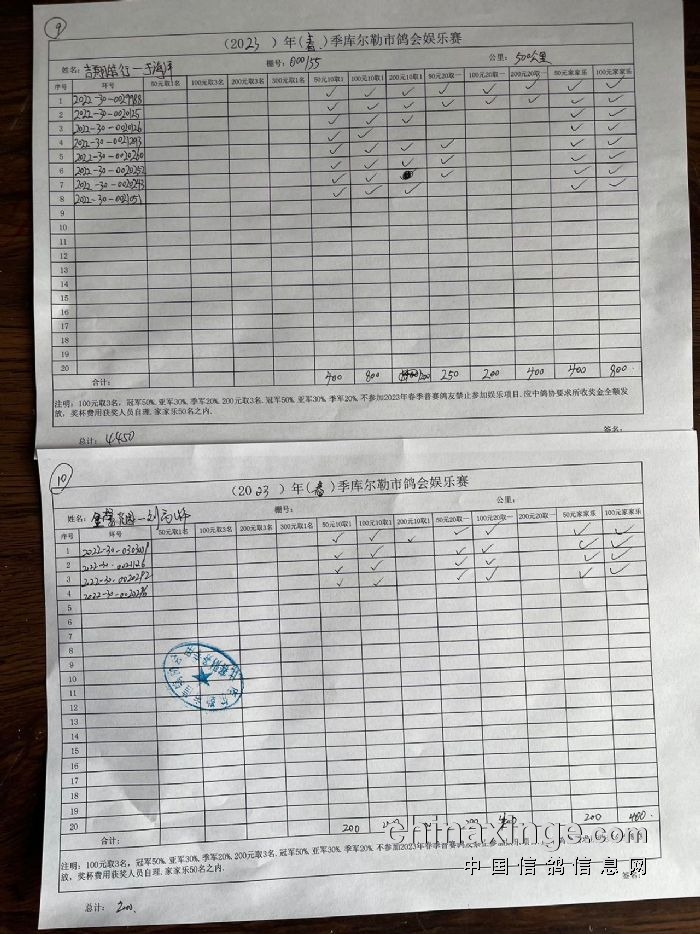 9
（2023）年（春）季库尔勒市鸽会娱乐赛
姓名： 棚号：000155 公里：500公里
序号 环号 50元取1名 100元取3名 200元取3名 300元取1名 50元10取1 100元10取1 200元10取1 50元20取一 100元20取一 200元20取一 50元家家乐 100元家家乐
1 2022-30-0029988
2 2022-30-0020125
3 2022-30-0020126
4 2022-30-0021293
5 2022-30-0020260
6 2022-30-0020252
7 2022-30-0020243
8 2022-30-0021051
9
10
11
12
13
14
15
16
17
18
19
20
合计： 400 800 250 200 400 400 800
注明：100元取3名，冠军50%，亚军30%，季军20%，200元取3名，冠军50%，亚军30%，季军20%，不参加2023年春季普赛鸽友禁止参加娱乐项目，应中鸽协要求所收奖金全额发
放，奖杯费用获奖人员自理，家家乐50名之内。
总计：4450 签名：
10
（2023）年（春）季库尔勒市鸽会娱乐赛
姓名： 棚号： 公里：
序号 环号 50元取1名 100元取3名 200元取3名 300元取1名 50元10取1 100元10取1 200元10取1 50元20取一 100元20取一 200元20取一 50元家家乐 100元家家乐
1
2 2022-30-0021126
3 2022-30-0020292
4 2022-30-0020296
5
6
7
8
9
10
11
12
13
14
15
16
17
18
19
20
合计： 200 200 400
注明：100元取3名，冠军50%，亚军30%，季军20%，200元取3名，冠军50%，亚军30%，季军20%，不参加2023年春季普赛鸽友禁止参加
放，奖杯费用获奖人员自理，家家乐50名之内。
签名：
总计：
chinaxinge.com
中国信鸽信息网